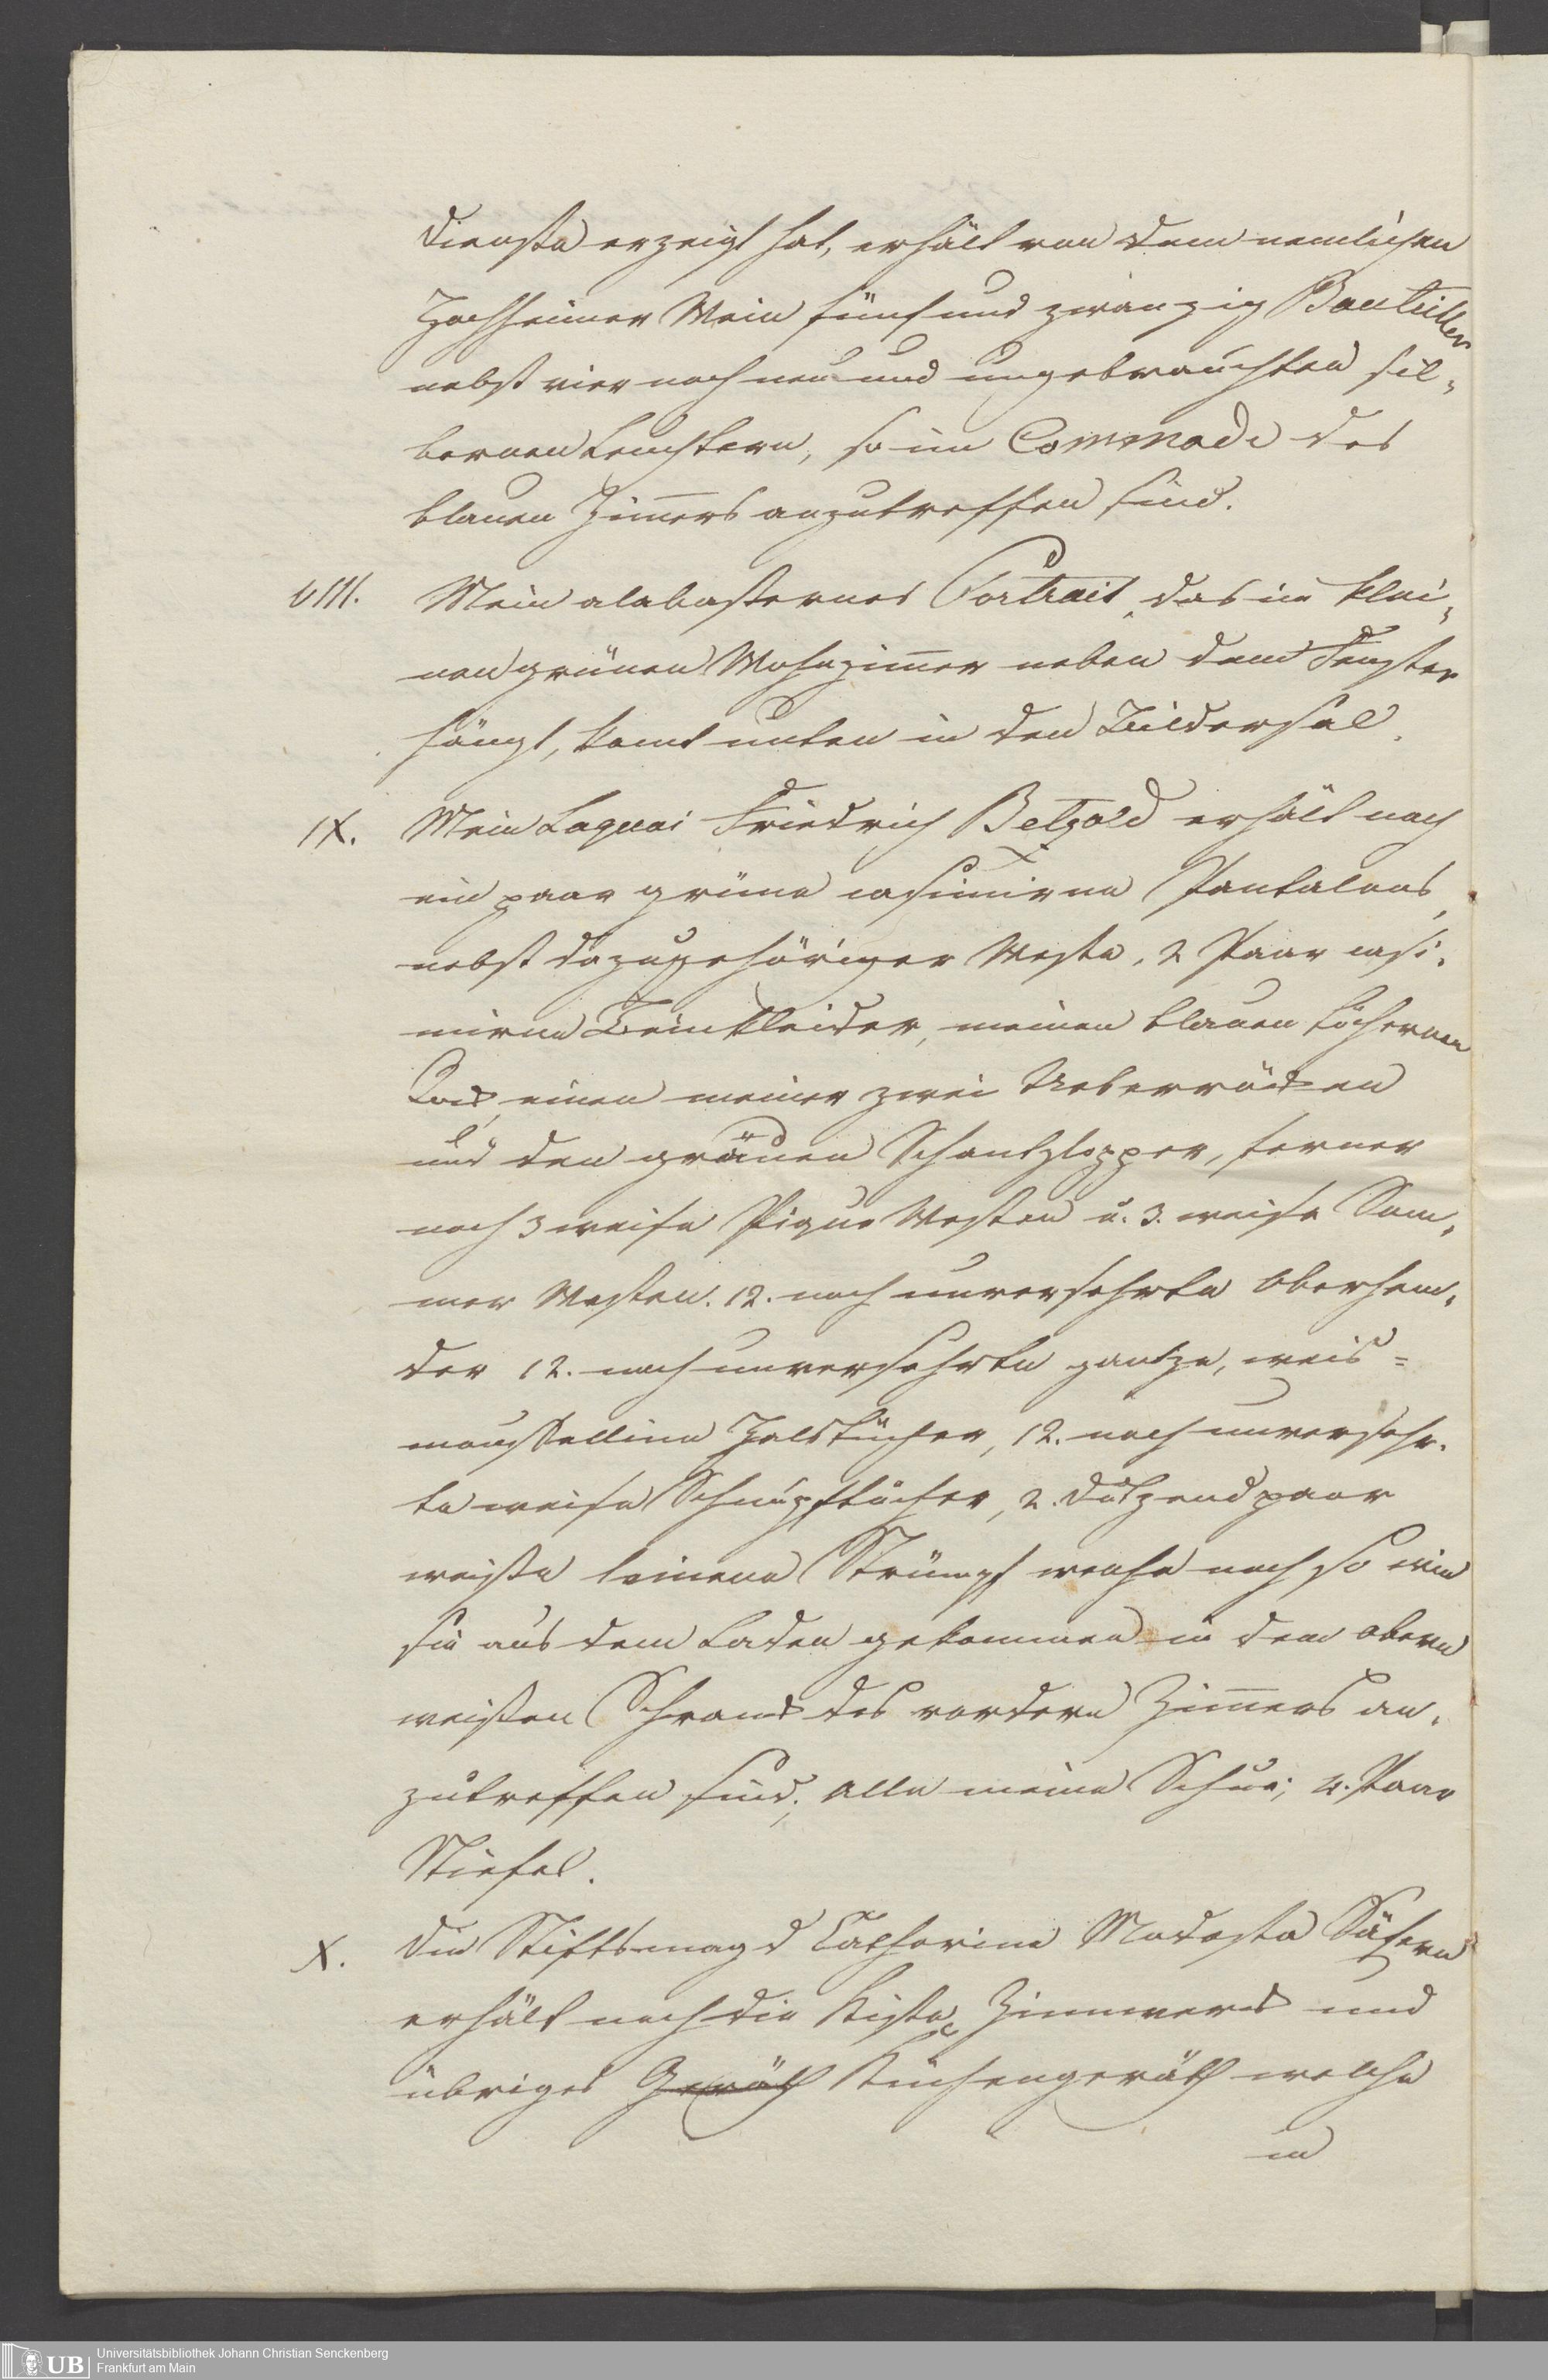 Dienste erzeigt hat, erhält von dem nemlichen
Hochheimer Wein fünf und zwanzig Bouteillen
nebst vier noch neu und ungebrauchten sil-
bernen Leuchtern, so im Commode des
blauen Zimers anzutreffen sind.
VIII. Mein alabasternes Portrait, das im klei-
nen grünen Wohnzimer neben dem Fenster
hängt, komt unten in den Bildersal.
IX. Mein Laquai Friedrich Betzold erhält noch
ein paar grüne casimirne Pantalons,
nebst dazugehöriger Weste, 2 Paar casi-
mirne Beinkleider, meinen blauen tüchernen
Rock, einen meiner zwei Ueberröcken
und den grünen Schantzlopper, ferner
noch 3 weise Pique Westen u. 3. weise Som-
mer Westen. 12. noch unversehrte Oberhem-
der 12. noch unversehrte gantze, weis=
mousselline Halstücher, 12. noch unversehr-
te weise Schnupftücher, 2. Dutzend paar
weisse leinene Strümpf welche noch so wie
sie aus dem Laden gekommen in dem obern
weissen Schranck des vordern Zimers an-
zutreffen sind; alle meine Schue; 4. Paar
Stiefel.
X. Die Stiftsmagd Catharina Modesta
erhält noch die Kiste Zinnwerck und
übriges Geräth Küchengeräth welche
in
Universitätsbibliothek Johann Christian Senckenberg
Frankfurt am Main
UB